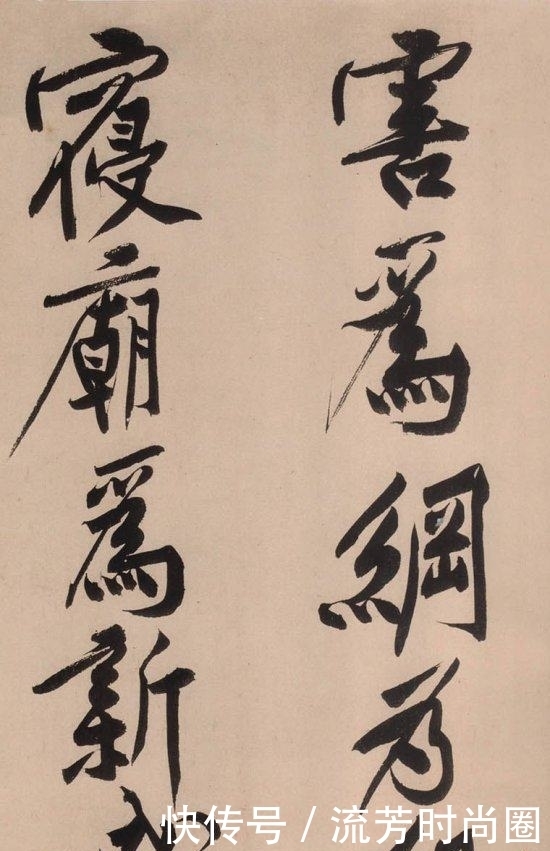 害爲綱为
寢廟爲新
快传号 / 流芳时尚圈